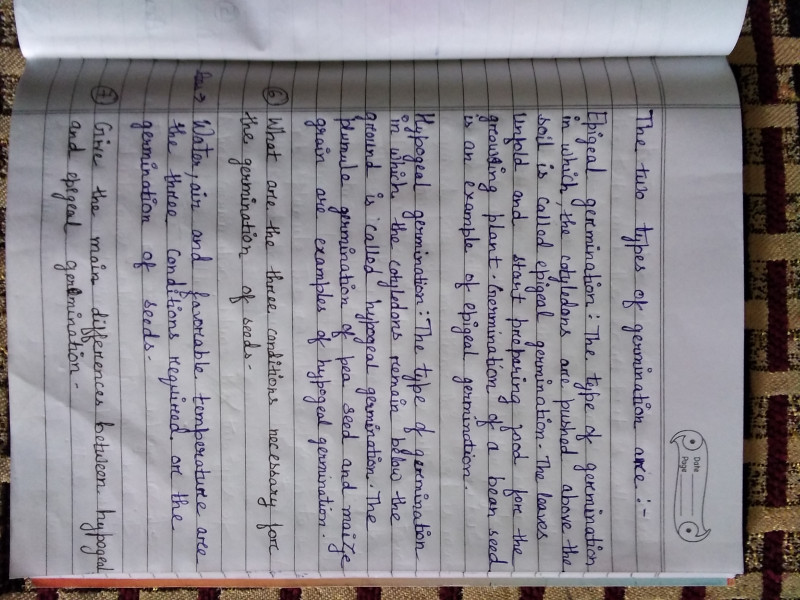 Date
Page
The two types of germination are :-
Epigeal germination : The type of germination
in which, the cotyledons are pushed above the
soil is called epigeal germination. The leaves
unfold and start preparing food for the
growing plant. Germination of a bean seed
is an example of epigeal germination.
Hypogeal germination : The type of germination
in which the cotyledons remain below the
ground is called hypogeal germination. The
plumule germination of pea seed and maize
grain are examples of hypogeal germination.
6 What are the three conditions necessary for
the germination of seeds.
Ans→ Water, air and favorable temperature are
the three conditions required or the
germination of seeds.
7 Give the main differences between hypogeal
and epigeal germination.